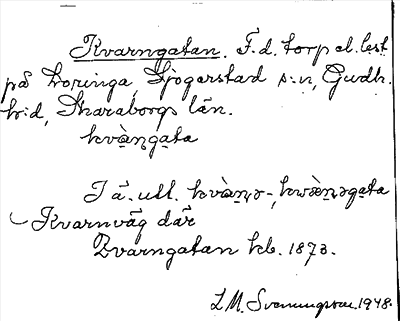 Kvarngatan. F.d. torp el. lest.
på Loringa, Sjogerstad s:n, Gudh.
h:d, Skaraborgs län.
kvàṇgata
I ä. utt. kvàṇə-, kwàṇəgata
Kvarnväg där
Qvarngatan kb. 1873.
L.M. Svenungsson. 1948.